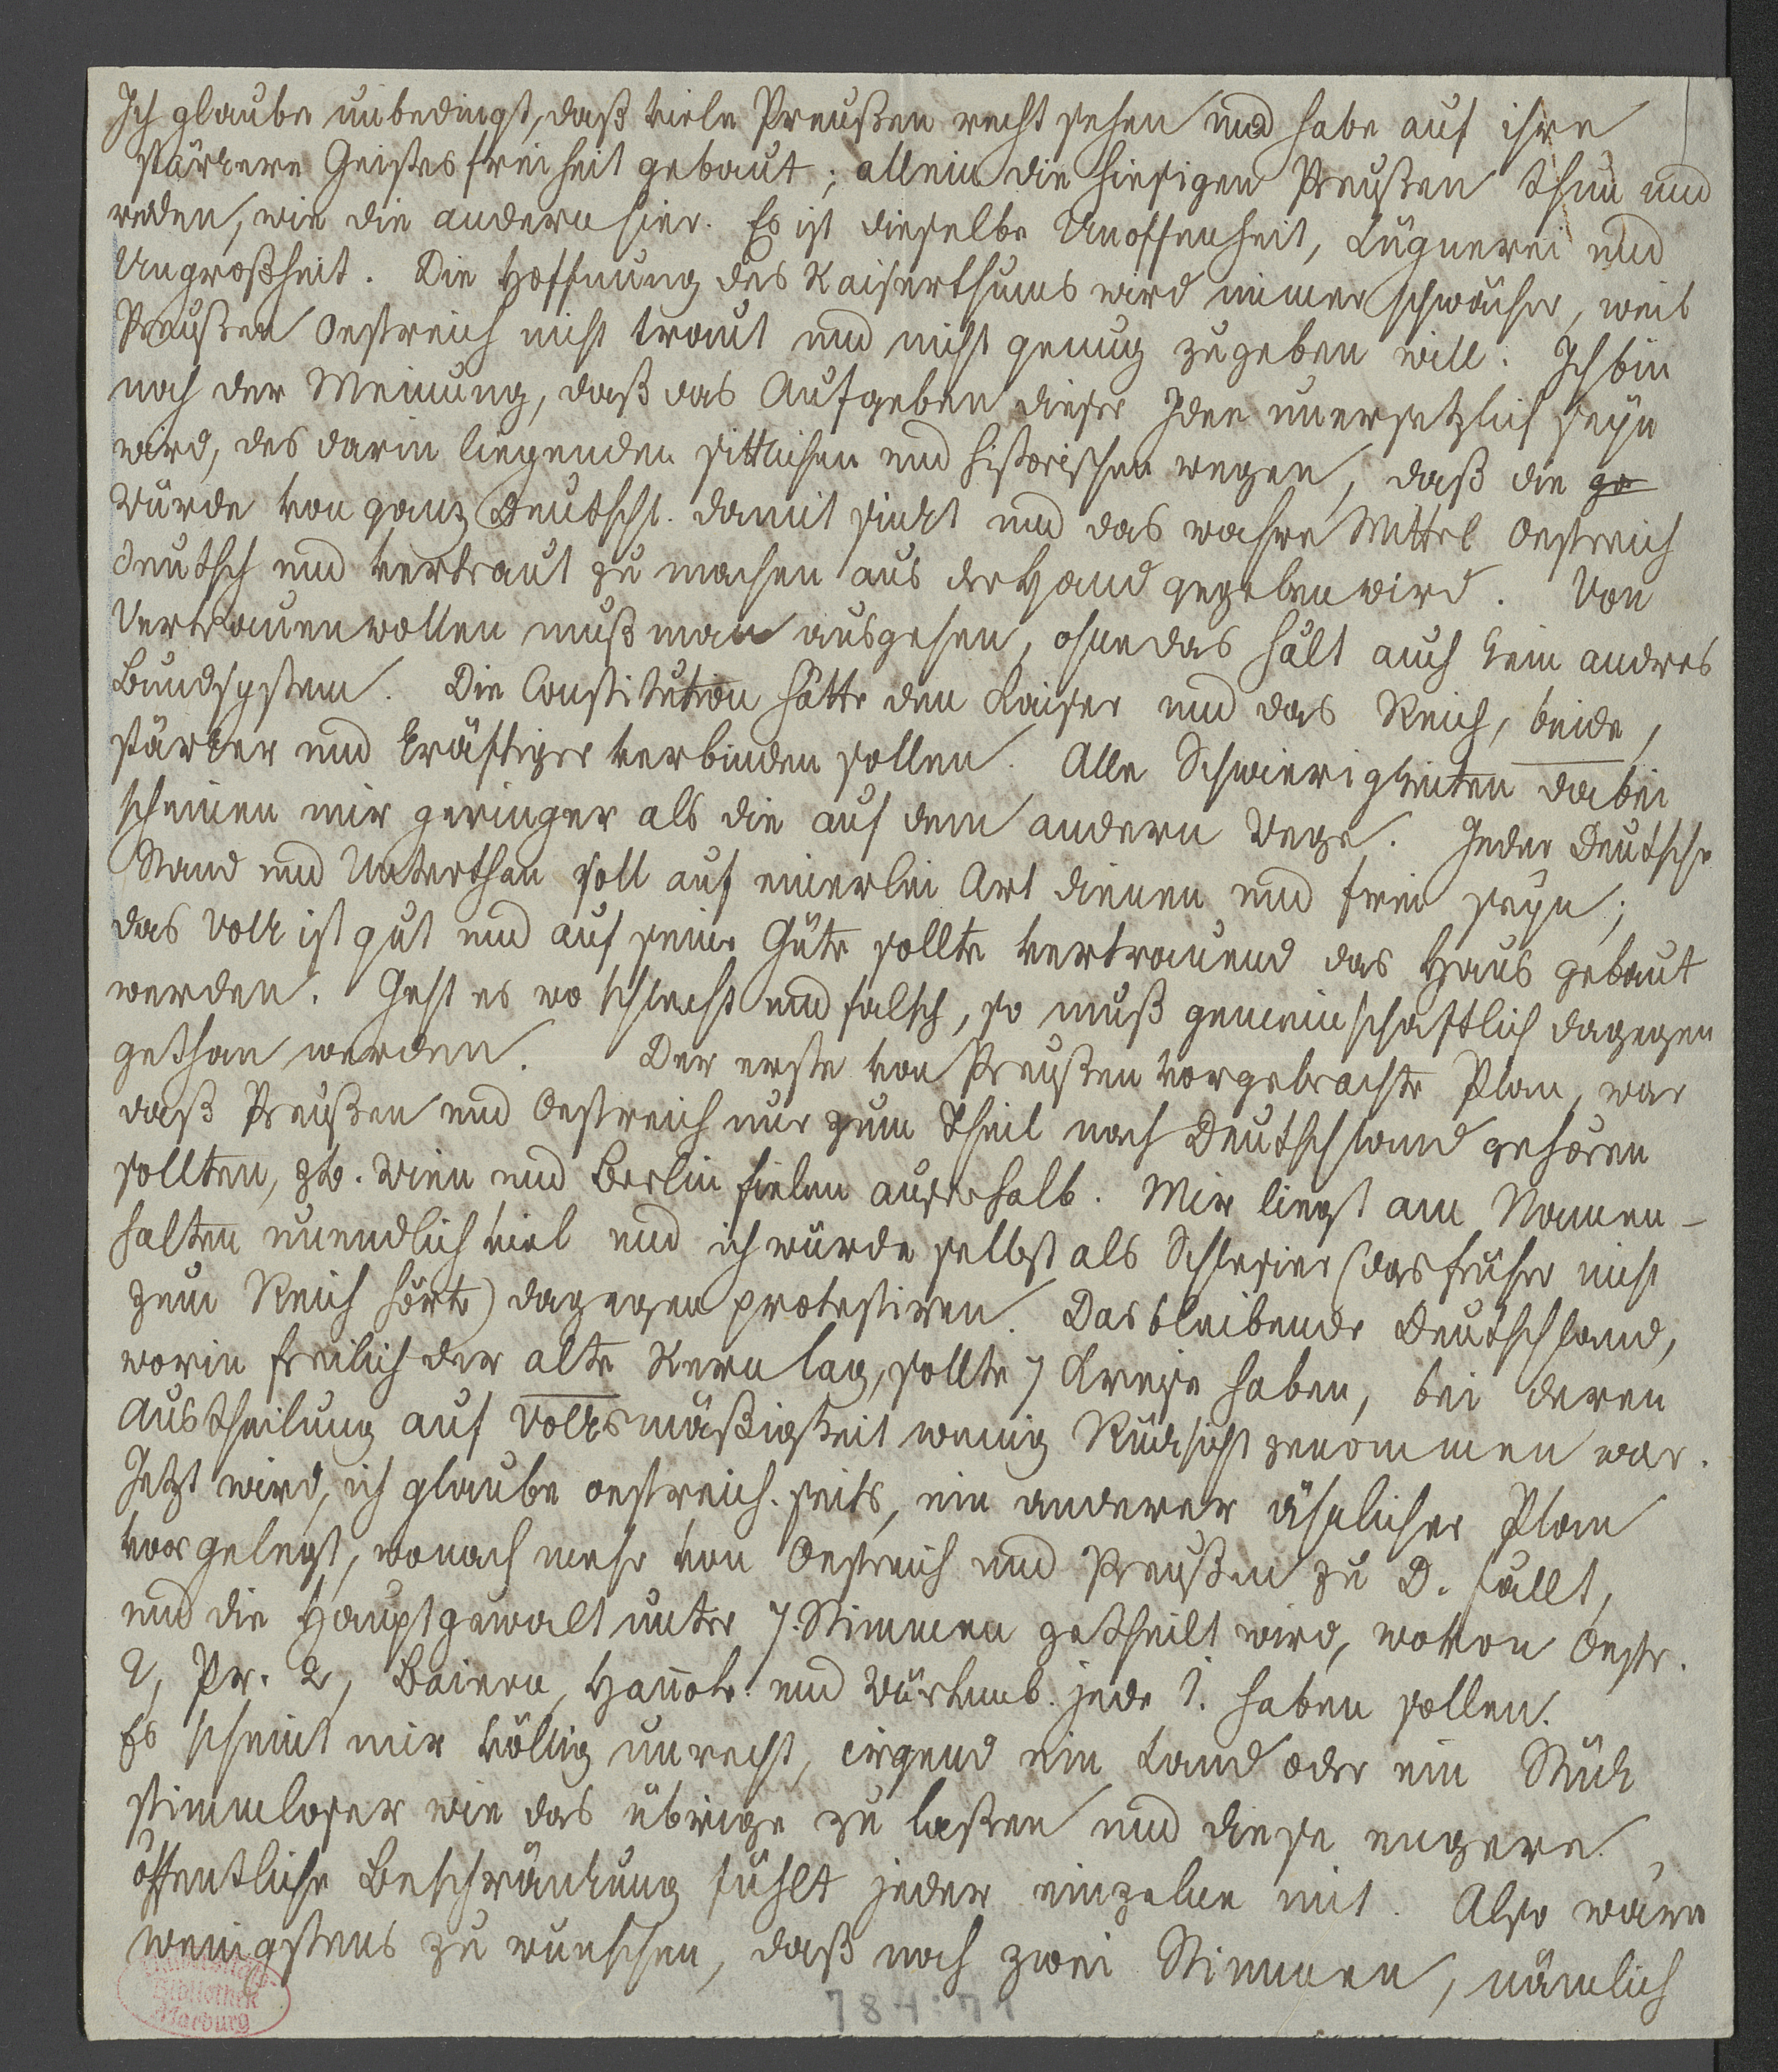 Ich glaube unbedingt, daß viele Preußen recht sehen und habe auf ihre
stärkere Geistesfreiheit gebaut; allein die hiesigen Preußen thun und
reden, wie die andern hier. Es ist dieselbe Unoffenheit, Lügnerei und
Ungroßheit. Die Hoffnung des Kaiserthums wird immer schwächer, weil
Preußen Oestreich nicht traut und nicht genug zugeben will. Ich bin
noch der Meinung, daß das Aufgeben dieser Idee unersetzlich seyn
wird, des darin liegenden sittlichen und historischen wegen, daß die ge
Würde von ganz Deutschl. damit sinkt und das wahre Mittel Oestreich
deutsch und vertraut zu machen aus der Hand gegeben wird. Von
Vertrauenwollen muß man ausgehen, ohne das hält auch kein andres
Bundsystem. Die Constitution hätte den Kaiser und das Reich, beide,
stärker und kräftiger verbinden sollen. Alle Schwierigkeiten dabei
scheinen mir geringer als die auf dem andern Wege. Jeder Deutsche
Stand und Unterthan soll auf einerlei Art dienen und frei seyn;
das Volk ist gut und auf seine Güte sollte vertrauend das Haus gebaut
werden. Geht es wo schlecht und falsch, so muß gemeinschaftlich dagegen
gethan werden. Der erste von Preußen vorgebrachte Plan, war
daß Preußen und Oestreich nur zum Theil nach Deutschland gehören
sollten, zb. Wien und Berlin fielen außerhalb. Mir liegt am Namen-
halten unendlich viel und ich würde selbst als Schlesier (das früher nicht
zum Reich hörte) dagegen protestiren. Das bleibende Deutschland,
worin freilich der alte Kern lag, sollte 7 Kreise haben, bei deren
Austheilung auf Volksmäßigkeit wenig Rücksicht genommen war.
Jetzt wird, ich glaube oestreich. seits, ein anderer ähnlicher Plan
vorgelegt, wonach mehr von Oestreich und Preußen zu D. fällt,
und die Hauptgewalt unter 7. Stimmen getheilt wird, wovon Oestr.
2, Pr. 2, Baiern, Hanov. und Würtemb. jede 1. haben sollen.
Es scheint mir völlig unrecht, irgend ein Land oder ein Stück
stimmloser wie das übrige zu laßen und diese engere
öffentliche Beschränkung fühlt jeder einzelne mit. Also wäre
wenigstens zu wünschen, daß noch zwei Stimmen, nämlich
Universitäts
Bibliothek
Marburg
784:71